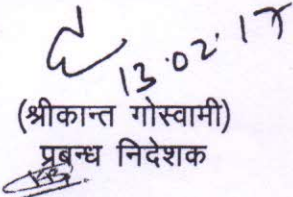 13.02.17
(श्रीकान्त गोस्वामी)
प्रबन्ध निदेशक